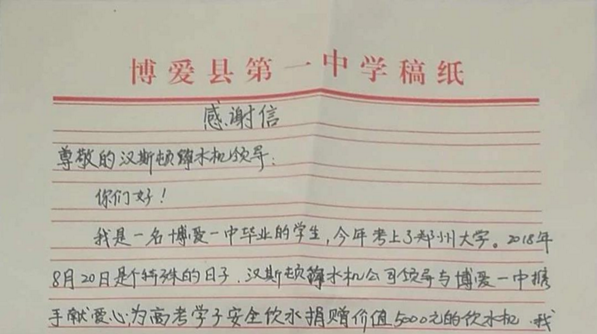 博爱县第一中学稿纸
感谢信
尊敬的汉斯顿净水机领导:
你们好!
我是一名博爱一中毕业的学生,今年考上了郑州大学。2018年
8月20日是个特殊的日子,汉斯顿净水机公司领导与博爱一中携
手献爱心,为高考学子安全饮水捐赠价值5000元的饮水机,我